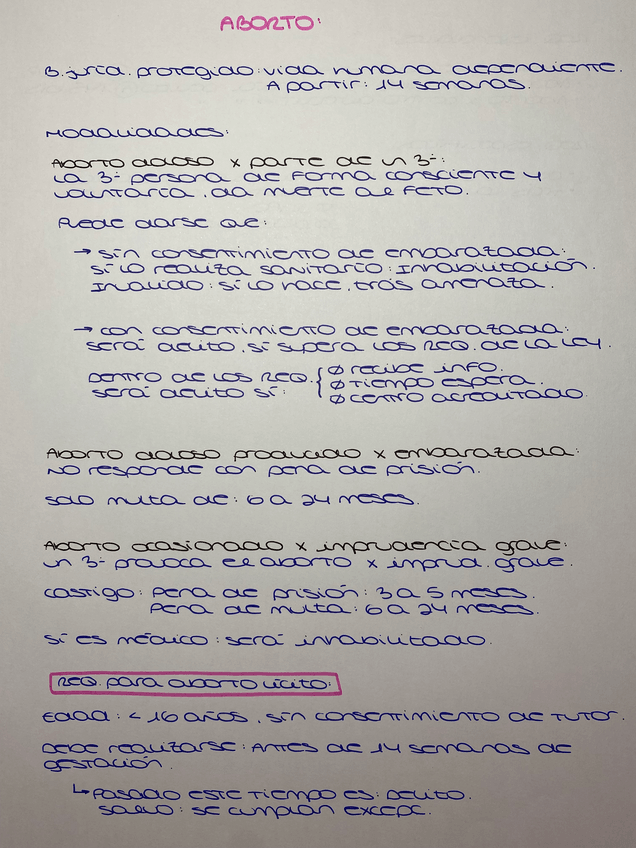 ABORTO:
B. jurcá. protegido: vida humana dependiente.
A partir: 14 semanas.
Modalidades:
Aborto doloso x parte de un 3º:
La 3º persona de forma consciente y
voluntaria, da muerte al FETO.
Puede darse de:
→ sin consentimiento de embarazada:
si lo realiza sanitario: Inhabilitación.
Inválido: si lo hace, tras amenaza.
→ con consentimiento de embarazada:
será delito, si supera los REQ. de la ley.
Dentro de los REQ. { Ø recibe info.
será delito si: Ø tiempo espera.
Ø centro acreditado.
Aborto doloso producido x embarazada:
NO responde con pena de prisión.
solo multa de: 6 a 24 meses.
Aborto ocasionado x imprudencia grave:
un 3º provoca el aborto x imprud. grave.
castigo: Pena de prisión: 3 a 5 meses.
Pena de multa: 6 a 24 meses.
si es médico: será inhabilitado.
REQ. para aborto lícito:
Edad: < 16 años, sin consentimiento de tutor.
Debe realizarse: Antes de 14 semanas de
gestación.
↳ Pasado este tiempo es: Delito.
salvo: se cumplan excepc.